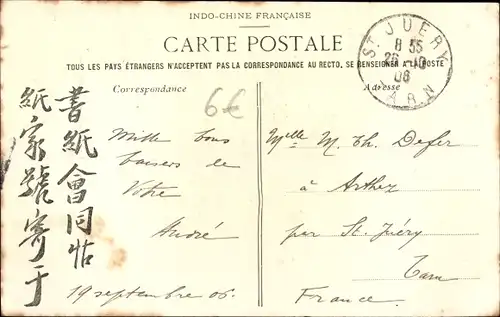 INDO-CHINE FRANÇAISE
CARTE POSTALE
TOUS LES PAYS ÉTRANGERS N'ACCEPTENT PAS LA CORRESPONDANCE AU RECTO, SE RENSEIGNER A LA POSTE
Correspondance
Adresse
6€
ST JUERY
8 35
26
06
TARN
書紙會同帖
紙家號寄于
Mille bons
baisers de
Votre
André
19 septembre 06.
Melle M. Th. Defer
à Arthez
par St. Juéry
Tarn
France